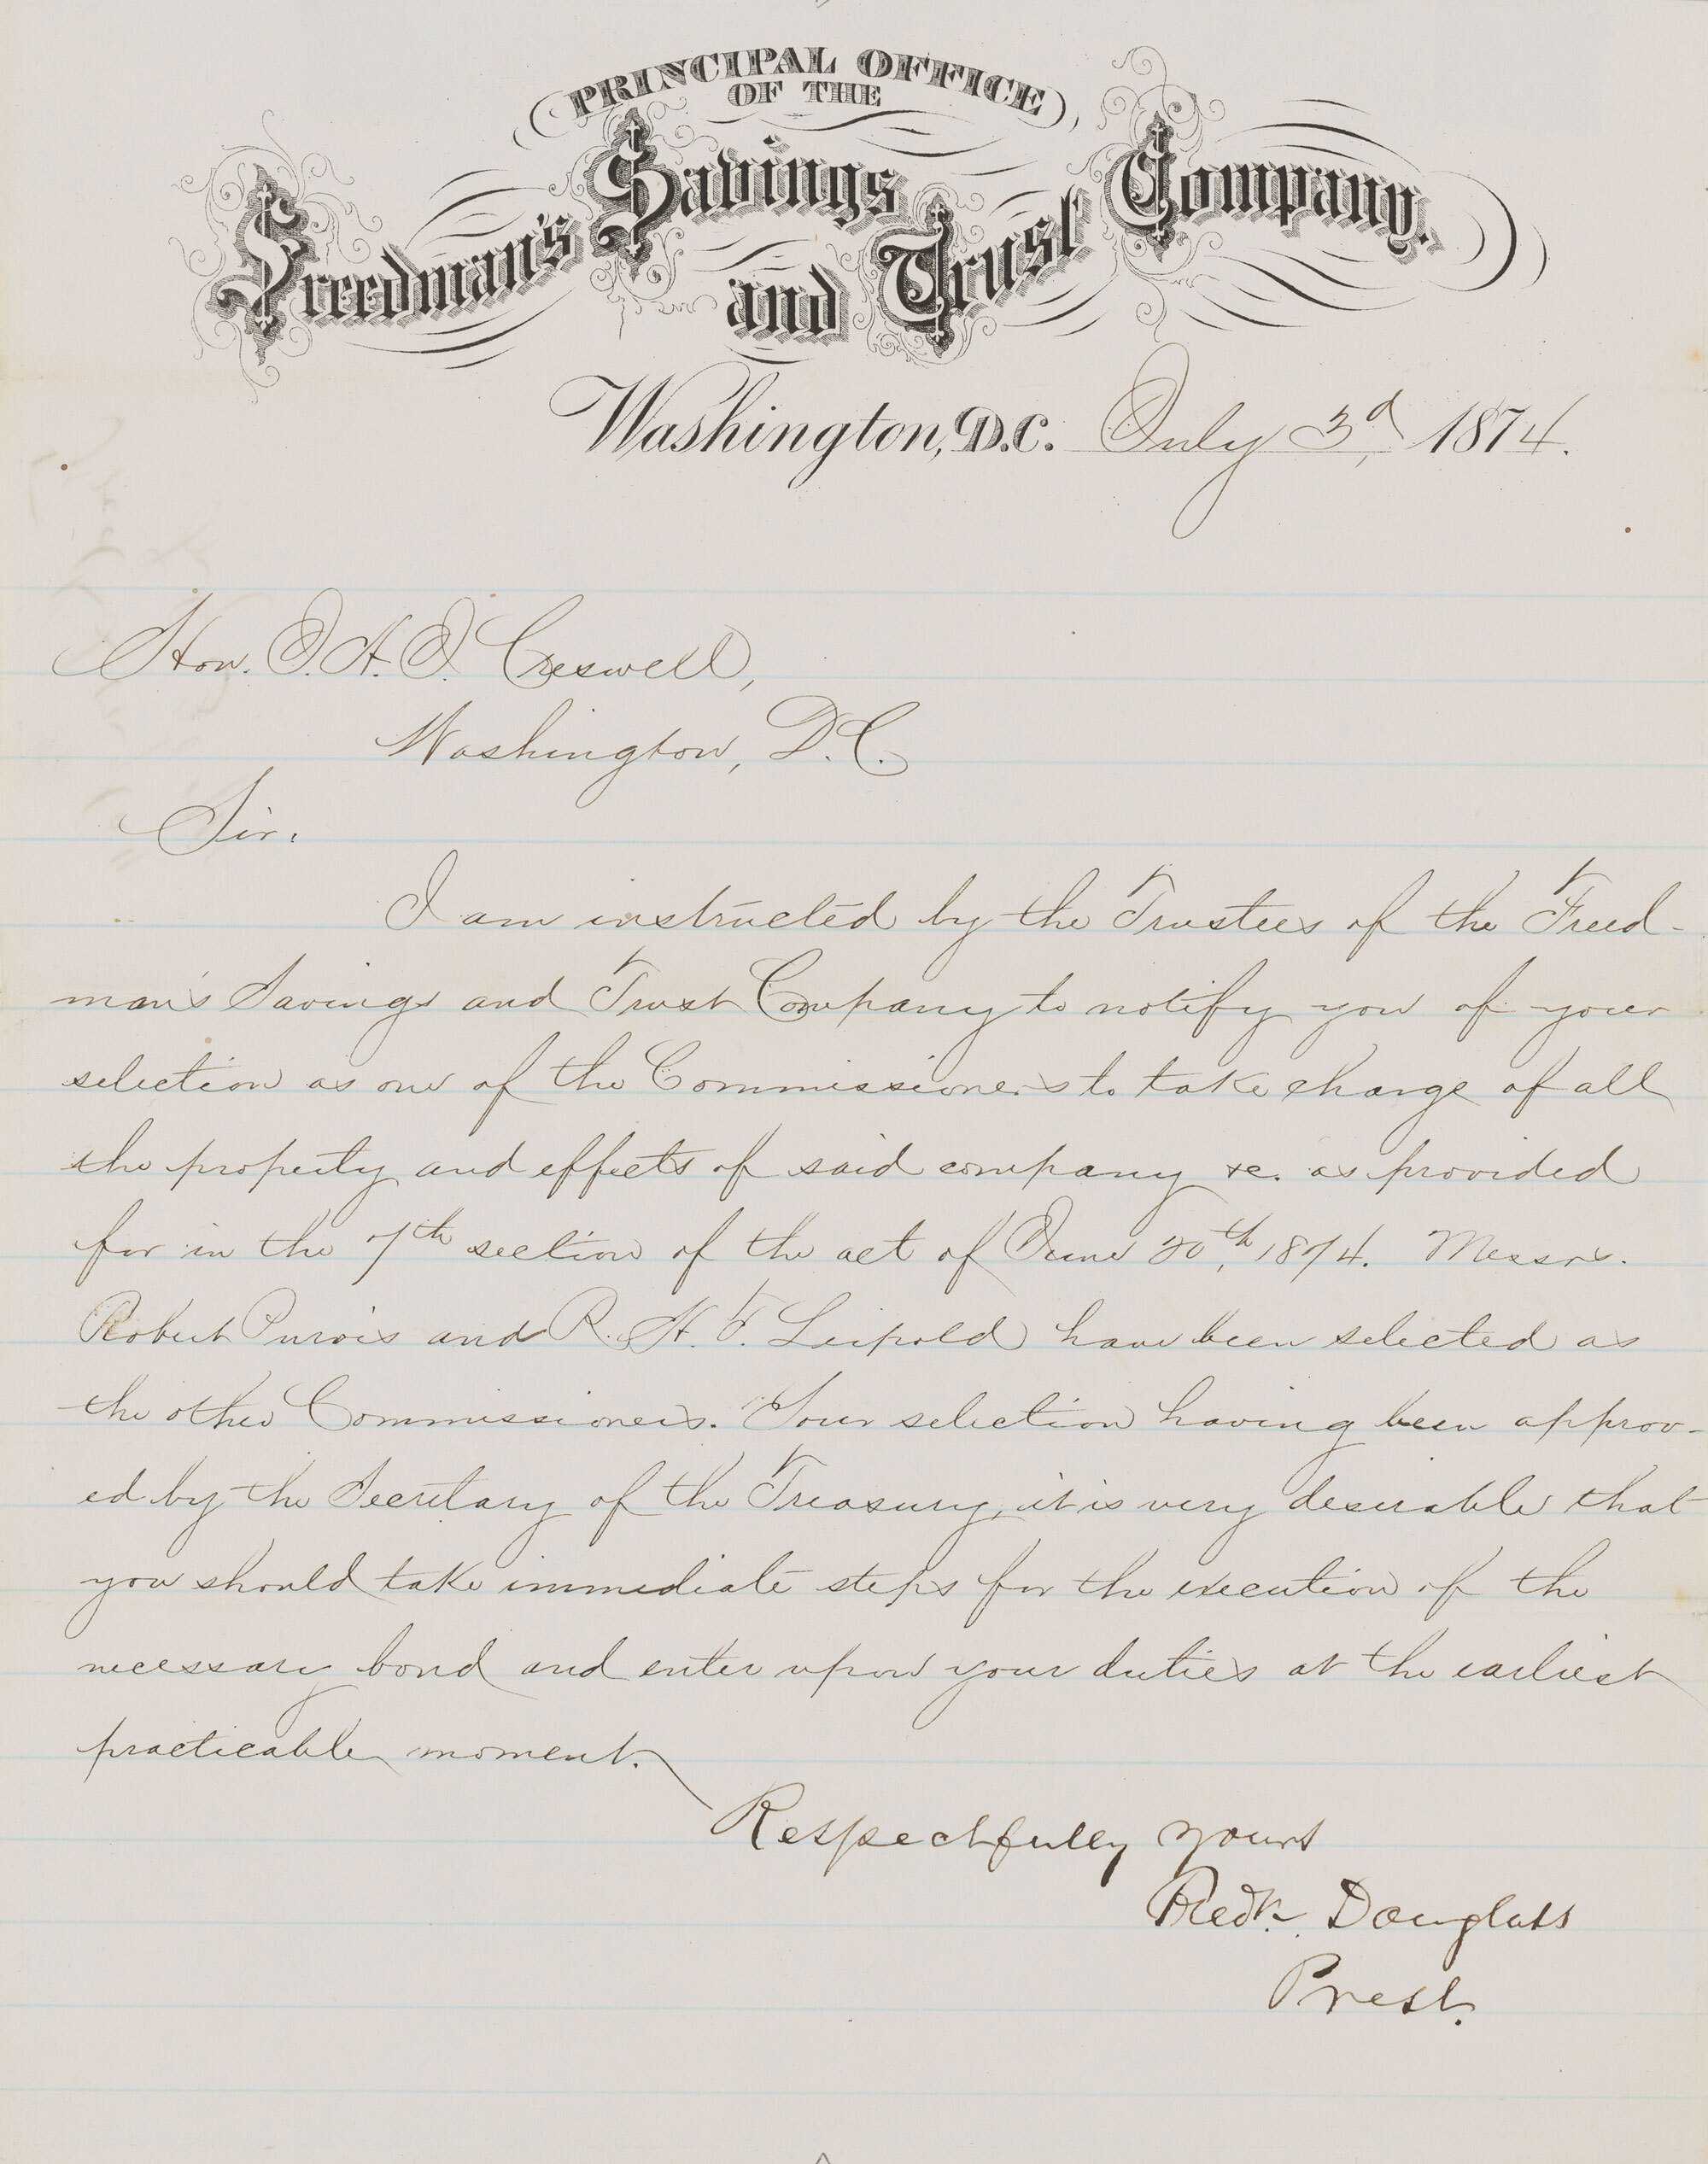 PRINCIPAL OFFICE
OF THE
Freedman's Savings and Trust Company.
Washington, D.C. July 3d, 1874.
Hon. J. A. J. Creswell,
Washington, D.C.
Sir.
I am instructed by the Trustees of the Freed-
man's Savings and Trust Company to notify you of your
selection as one of the Commissioners to take charge of all
the property and effects of said company &c. as provided
for in the 7th section of the act of June 20th, 1874. Messrs.
Robert Purvis and R. H. T. Leipold have been selected as
the other Commissioners. Your selection having been approv-
ed by the Secretary of the Treasury, it is very desirable that
you should take immediate steps for the execution of the
necessary bond and enter upon your duties at the earliest
practicable moment.
Respectfully yours
Fredk. Douglass
Prest.